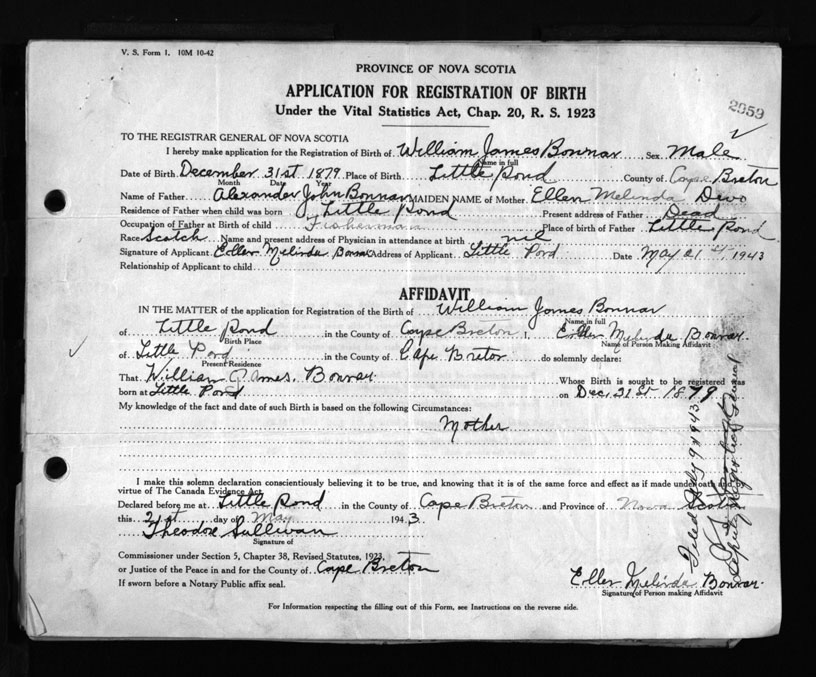 V. S. Form 1. 10M 10-42
PROVINCE OF NOVA SCOTIA
APPLICATION FOR REGISTRATION OF BIRTH
Under the Vital Statistics Act, Chap. 20, R. S. 1923
2959
TO THE REGISTRAR GENERAL OF NOVA SCOTIA
I hereby make application for the Registration of Birth of William James Bonnar, Sex Male
Name in full
Date of Birth December 31st 1879 Place of Birth Little Pond County of Cape Breton
Month Date Year
Name of Father Alexander John Bonnar MAIDEN NAME of Mother Ellen Melinda
Residence of Father when child was born Little Pond Present address of Father Dead
Occupation of Father at Birth of child Fisherman Place of birth of Father Little Pond
Race Scotch Name and present address of Physician in attendance at birth nil
Signature of Applicant Ellen Melinda Bonnar Address of Applicant Little Pond Date May 21st, 1943
Relationship of Applicant to child
AFFIDAVIT
IN THE MATTER of the application for Registration of the Birth of William James Bonnar
Name in full
of Little Pond in the County of Cape Breton I, Ellen Melinda Bonnar
Birth Place Name of Person Making Affidavit
of Little Pond in the County of Cape Breton do solemnly declare:
Present Residence
That William James Bonnar Whose Birth is sought to be registered was
born at Little Pond on Dec, 31st 1879
My knowledge of the fact and date of such Birth is based on the following Circumstances:
Mother
I make this solemn declaration conscientiously believing it to be true, and knowing that it is of the same force and effect as if made under oath and by
virtue of The Canada Evidence Act.
Declared before me at Little Pond in the County of Cape Breton and Province of Nova Scotia
this 21st day of May 1943.
Theodore Sullivan
Signature of
Commissioner under Section 5, Chapter 38, Revised Statutes, 1923.
or Justice of the Peace in and for the County of Cape Breton
If sworn before a Notary Public affix seal.
Ellen Melinda Bonnar.
Signature of Person making Affidavit
For Information respecting the filling out of this Form, see Instructions on the reverse side.
Deputy Registrar General